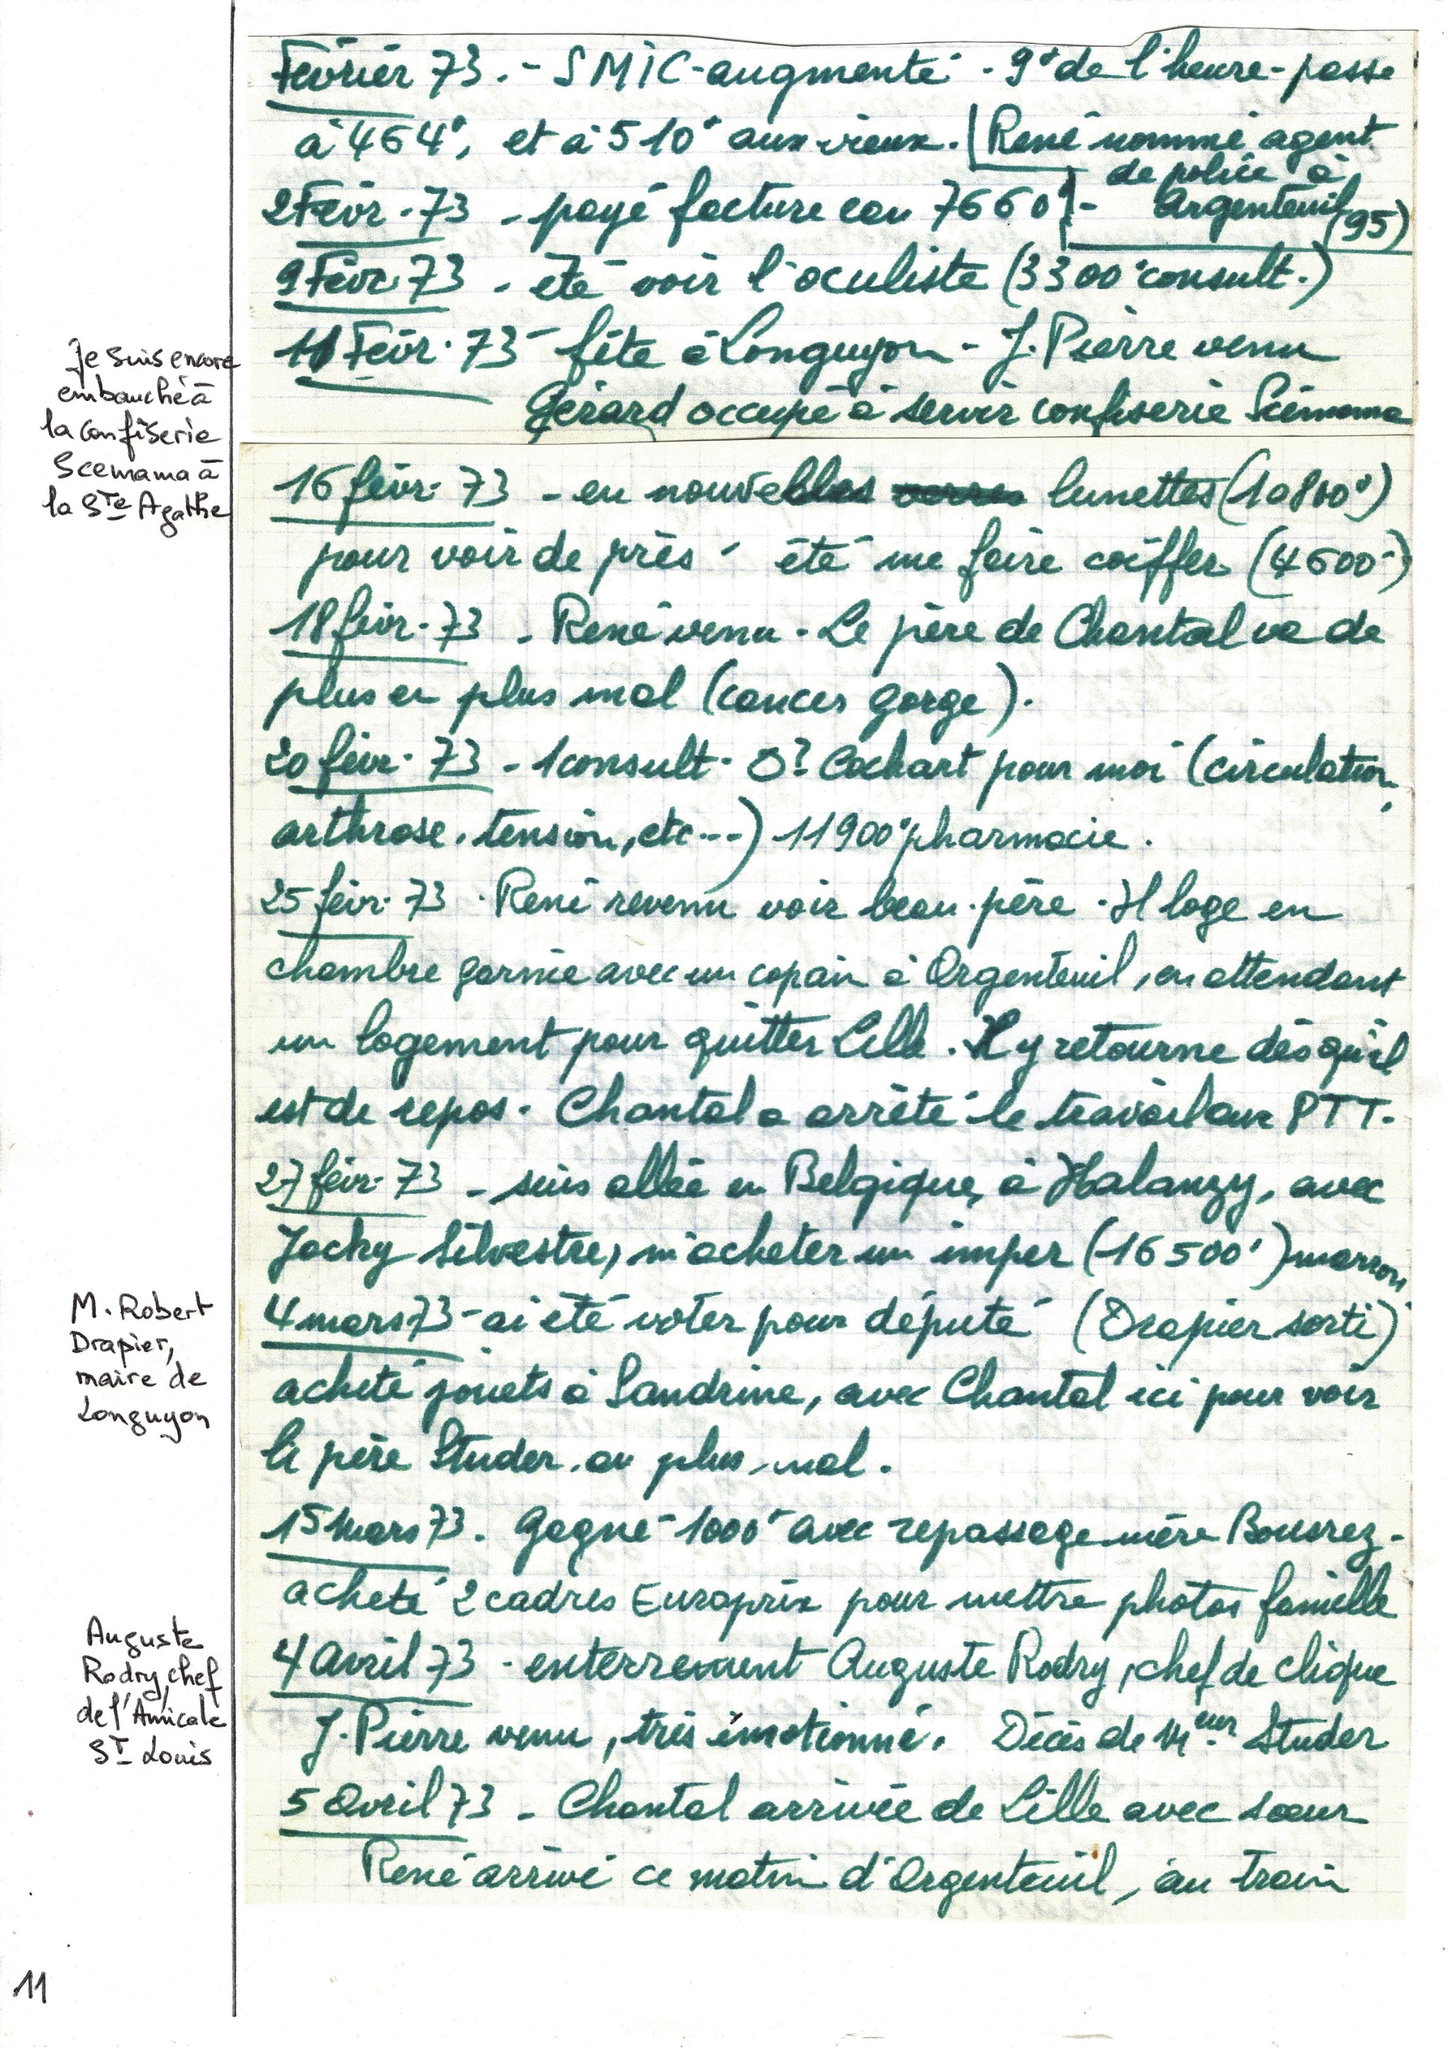 Février 73. - SMIC - augmenté - 9° de l'heure - passe
à 464°, et à 510° aux vieux. René nommé agent
de police à
Argenteuil (95)
2 Févr. 73 - payé facture eau 7660°
9 Févr. 73 - été voir l'oculiste (3300° consult.)
11 Févr. 73 - fête à Longuyon - J. Pierre venu
Gérard occupé à servir confiserie Scémama
Je suis encore
embauché à
la confiserie
Scemama à
la Ste Agathe
16 févr. 73 - eu nouvelles lunettes (10800°)
pour voir de près - été me faire coiffer (4600-)
18 févr. 73 - René venu - Le père de Chantal va de
plus en plus mal (cancer gorge).
20 févr. 73 - 1 consult. Cochart pour moi (circulation,
arthrose, tension, etc ---) 11900° pharmacie.
25 févr. 73 - René revenu voir beau-père - Il loge en
chambre garnie avec un copain à Argenteuil, en attendant
un logement pour quitter Lille. Il y retourne dès qu'il
est de repos. Chantal a arrêté le travail aux PTT.
27 févr. 73 - suis allée en Belgique, à Halanzy, avec
Jacky Silvestre, m'acheter un imper (16500°) marron
4 mars 73 - ai été voter pour député (Drapier sorti)
acheté jouets à Sandrine, avec Chantal ici pour voir
le père Studer, au plus mal.
M. Robert
Drapier,
maire de
Longuyon
15 mars 73. Gagné 1000° avec repassage mère Bousrez -
acheté 2 cadres Europrix pour mettre photos famille
4 Avril 73 - enterrement Auguste Rodry, chef de clique
J. Pierre venu, très émotionné. Décès de Mr Studer
Auguste
Rodry, chef
de l'Amicale
St Louis
5 Avril 73 - Chantal arrivée de Lille avec soeur
René arrivé ce matin d'Argenteuil, au train
11